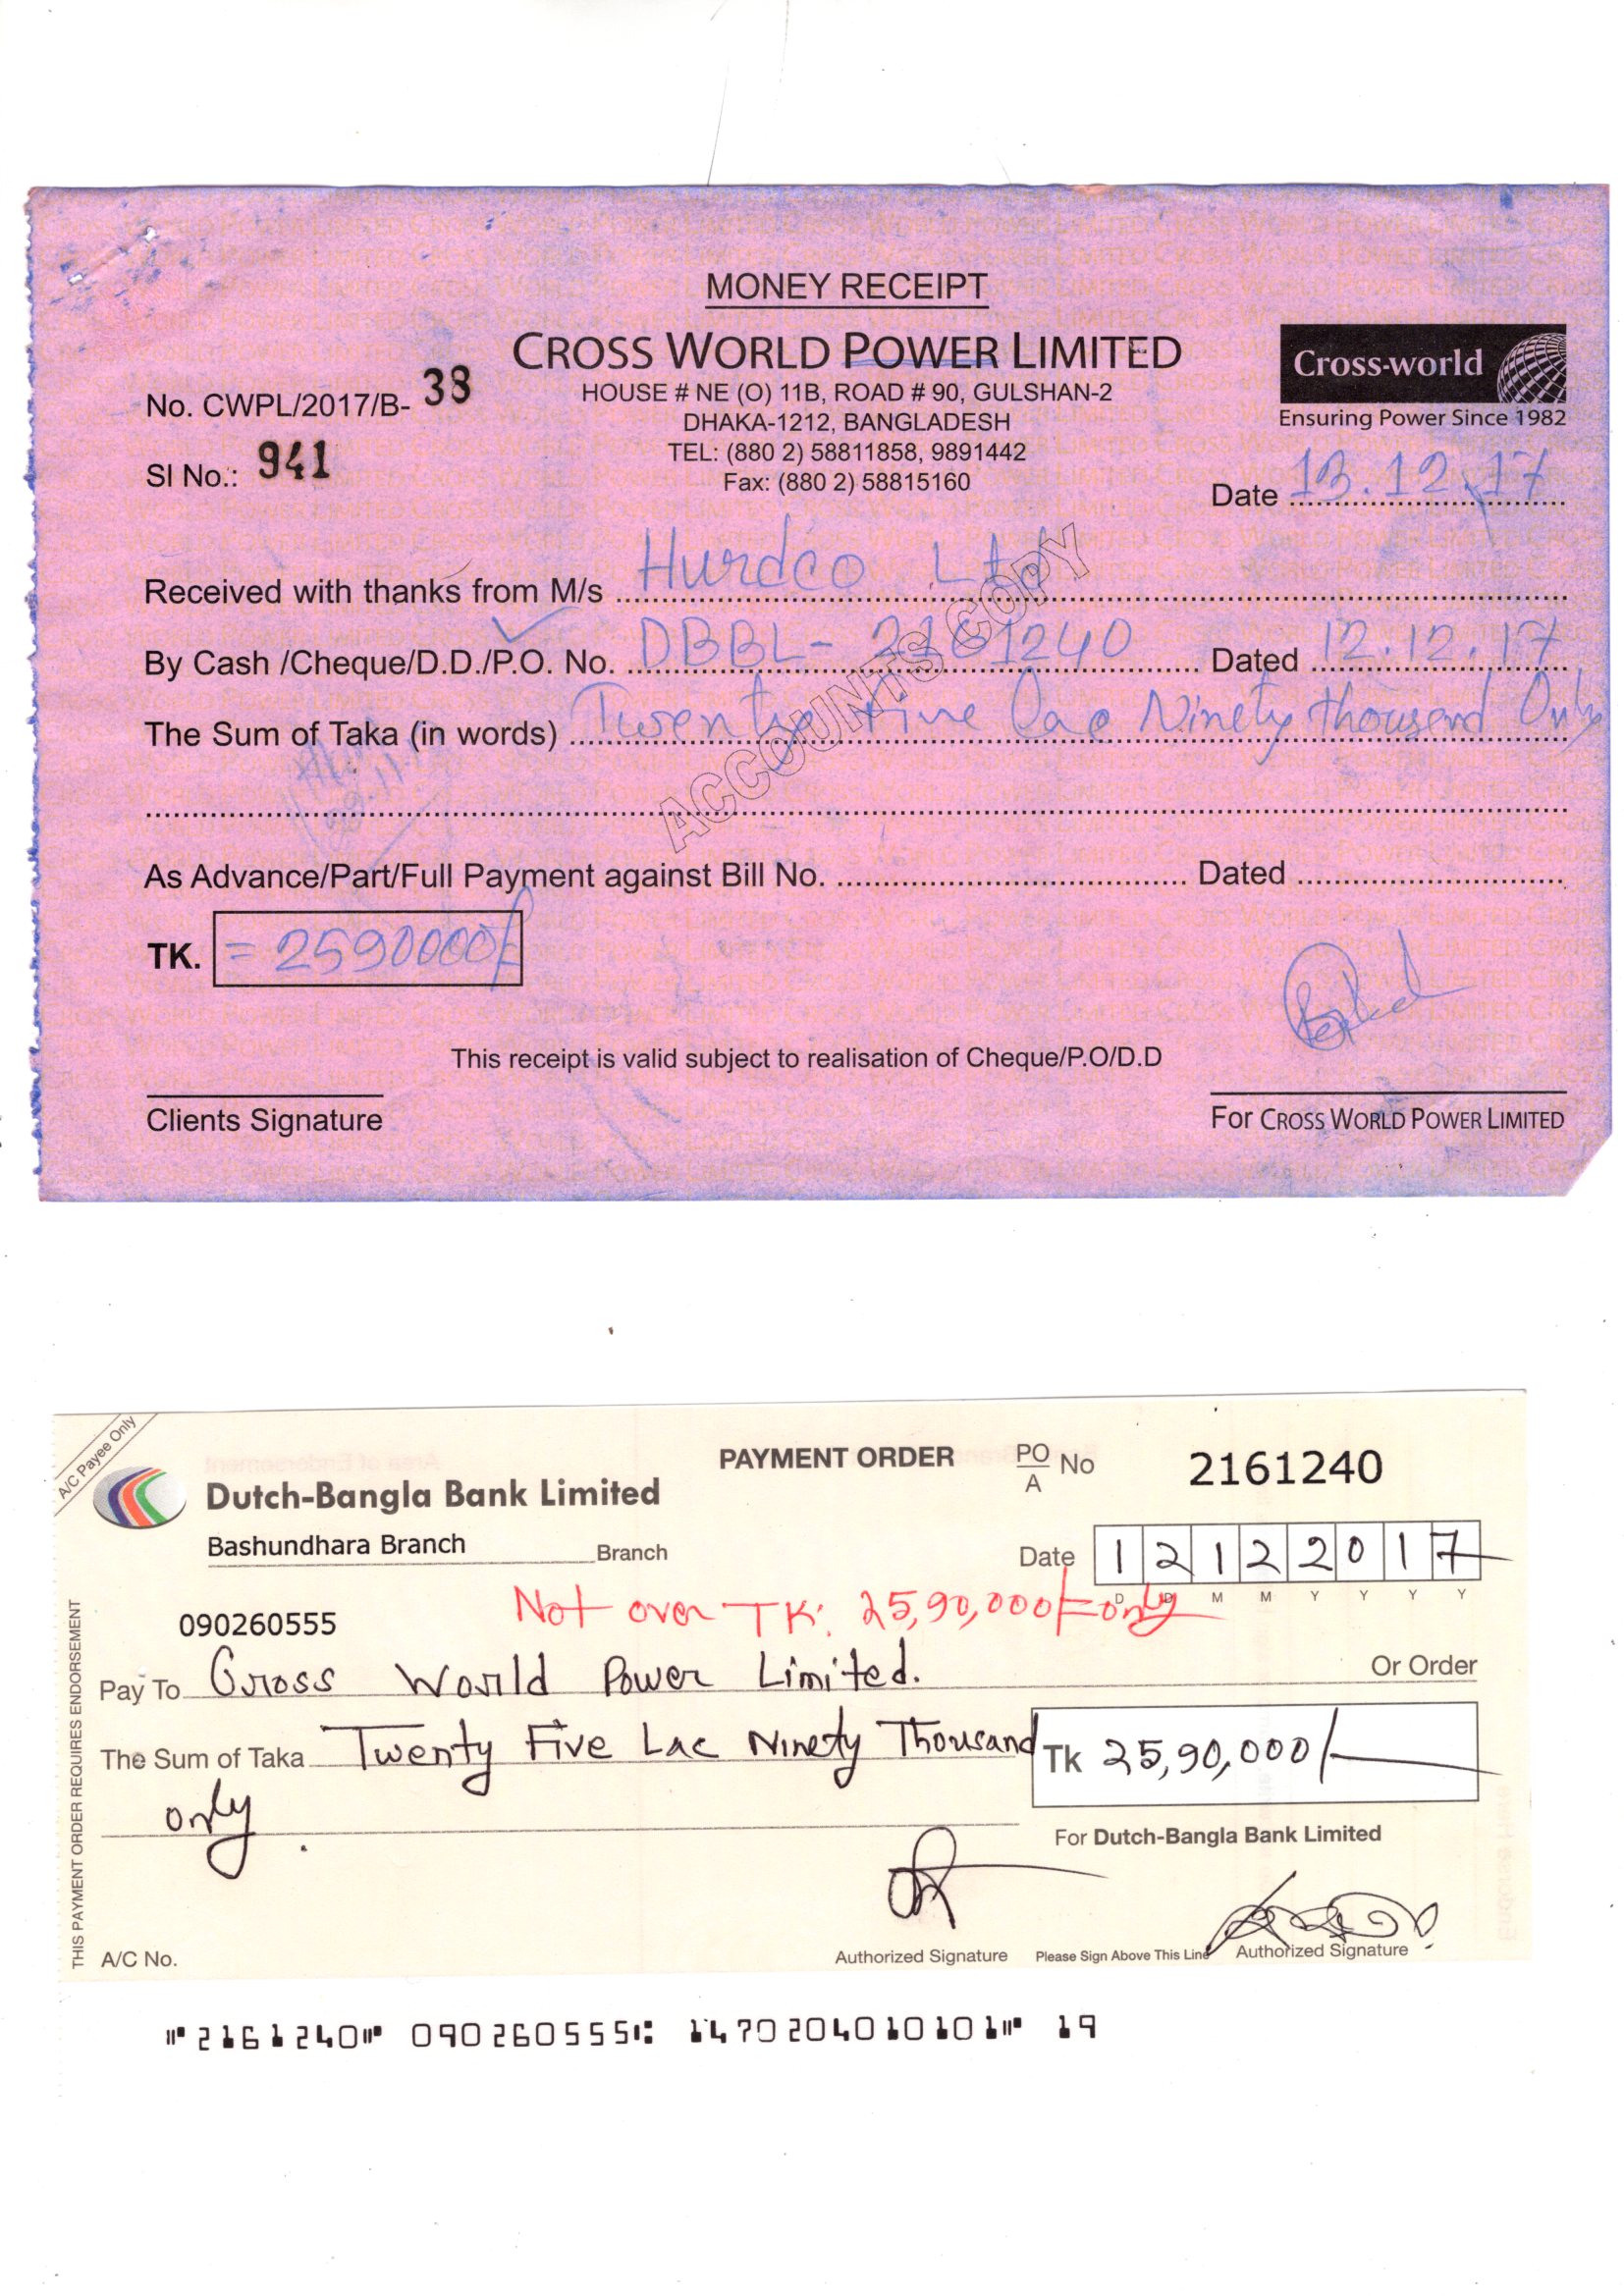 MONEY RECEIPT
CROSS WORLD POWER LIMITED
HOUSE # NE (O) 11B, ROAD # 90, GULSHAN-2
DHAKA-1212, BANGLADESH
TEL: (880 2) 58811858, 9891442
Fax: (880 2) 58815160
Cross-world
Ensuring Power Since 1982
No. CWPL/2017/B- 38
SI No.: 941
Date 13.12.17
Received with thanks from M/s Hurdco Ltd
By Cash /Cheque/D.D./P.O. No. DBBL- 2161240 Dated 12.12.17
The Sum of Taka (in words) Twenty Five Lac Ninety thousand Only
ACCOUNTS COPY
As Advance/Part/Full Payment against Bill No. Dated
TK. = 2590000/
This receipt is valid subject to realisation of Cheque/P.O/D.D
Clients Signature
For CROSS WORLD POWER LIMITED
A/C Payee Only
PAYMENT ORDER PO/A No 2161240
Dutch-Bangla Bank Limited
Bashundhara Branch Branch
Date 12122017
D D M M Y Y Y Y
Not over TK: 25,90,000/= only
090260555
Pay To Cross World Power Limited. Or Order
The Sum of Taka Twenty Five Lac Ninety Thousand
only.
Tk 25,90,000/
For Dutch-Bangla Bank Limited
THIS PAYMENT ORDER REQUIRES ENDORSEMENT
A/C No.
Authorized Signature Please Sign Above This Line Authorized Signature
⑈2161240⑈ 090260555⑆ 1470204010101⑈ 19